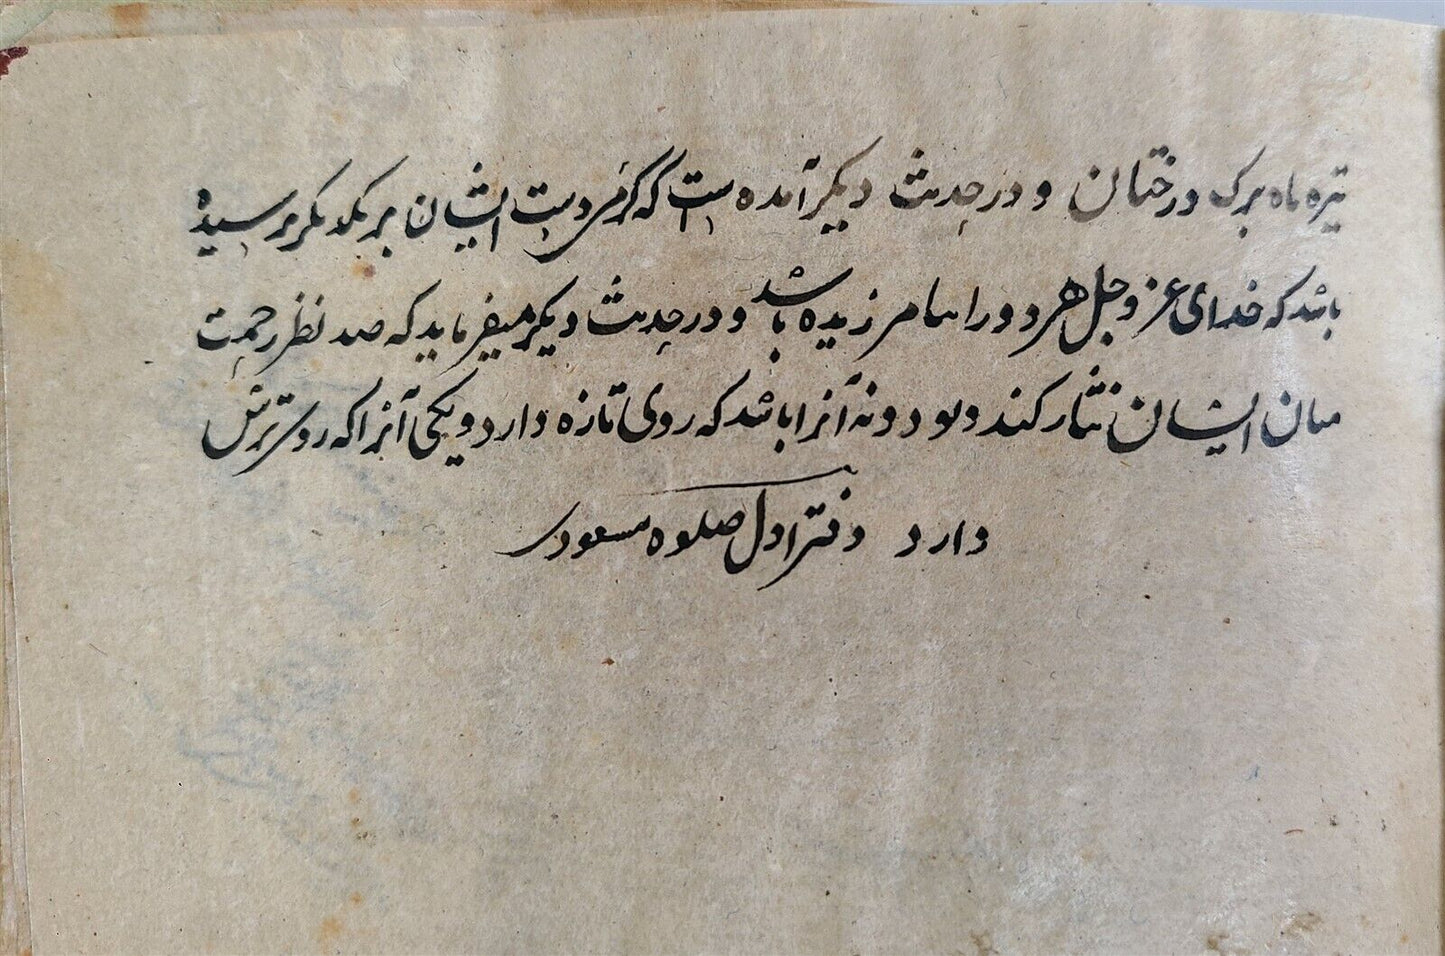 تیره ماه برک درختان و در حدیث دیکر آمده است که کرمی دست ایشان بر یکدیکر نرسیده
باشد که خدای عز و جل هر دو را بیامرزیده باشد و در حدیث دیکر میفرماید که صد نظر رحمت
میان ایشان نثار کند و نود و نه آنرا باشد که روی تازه دارد و یکی آنرا که رو ترش
دارد دفتر اول صلوه مسعودی